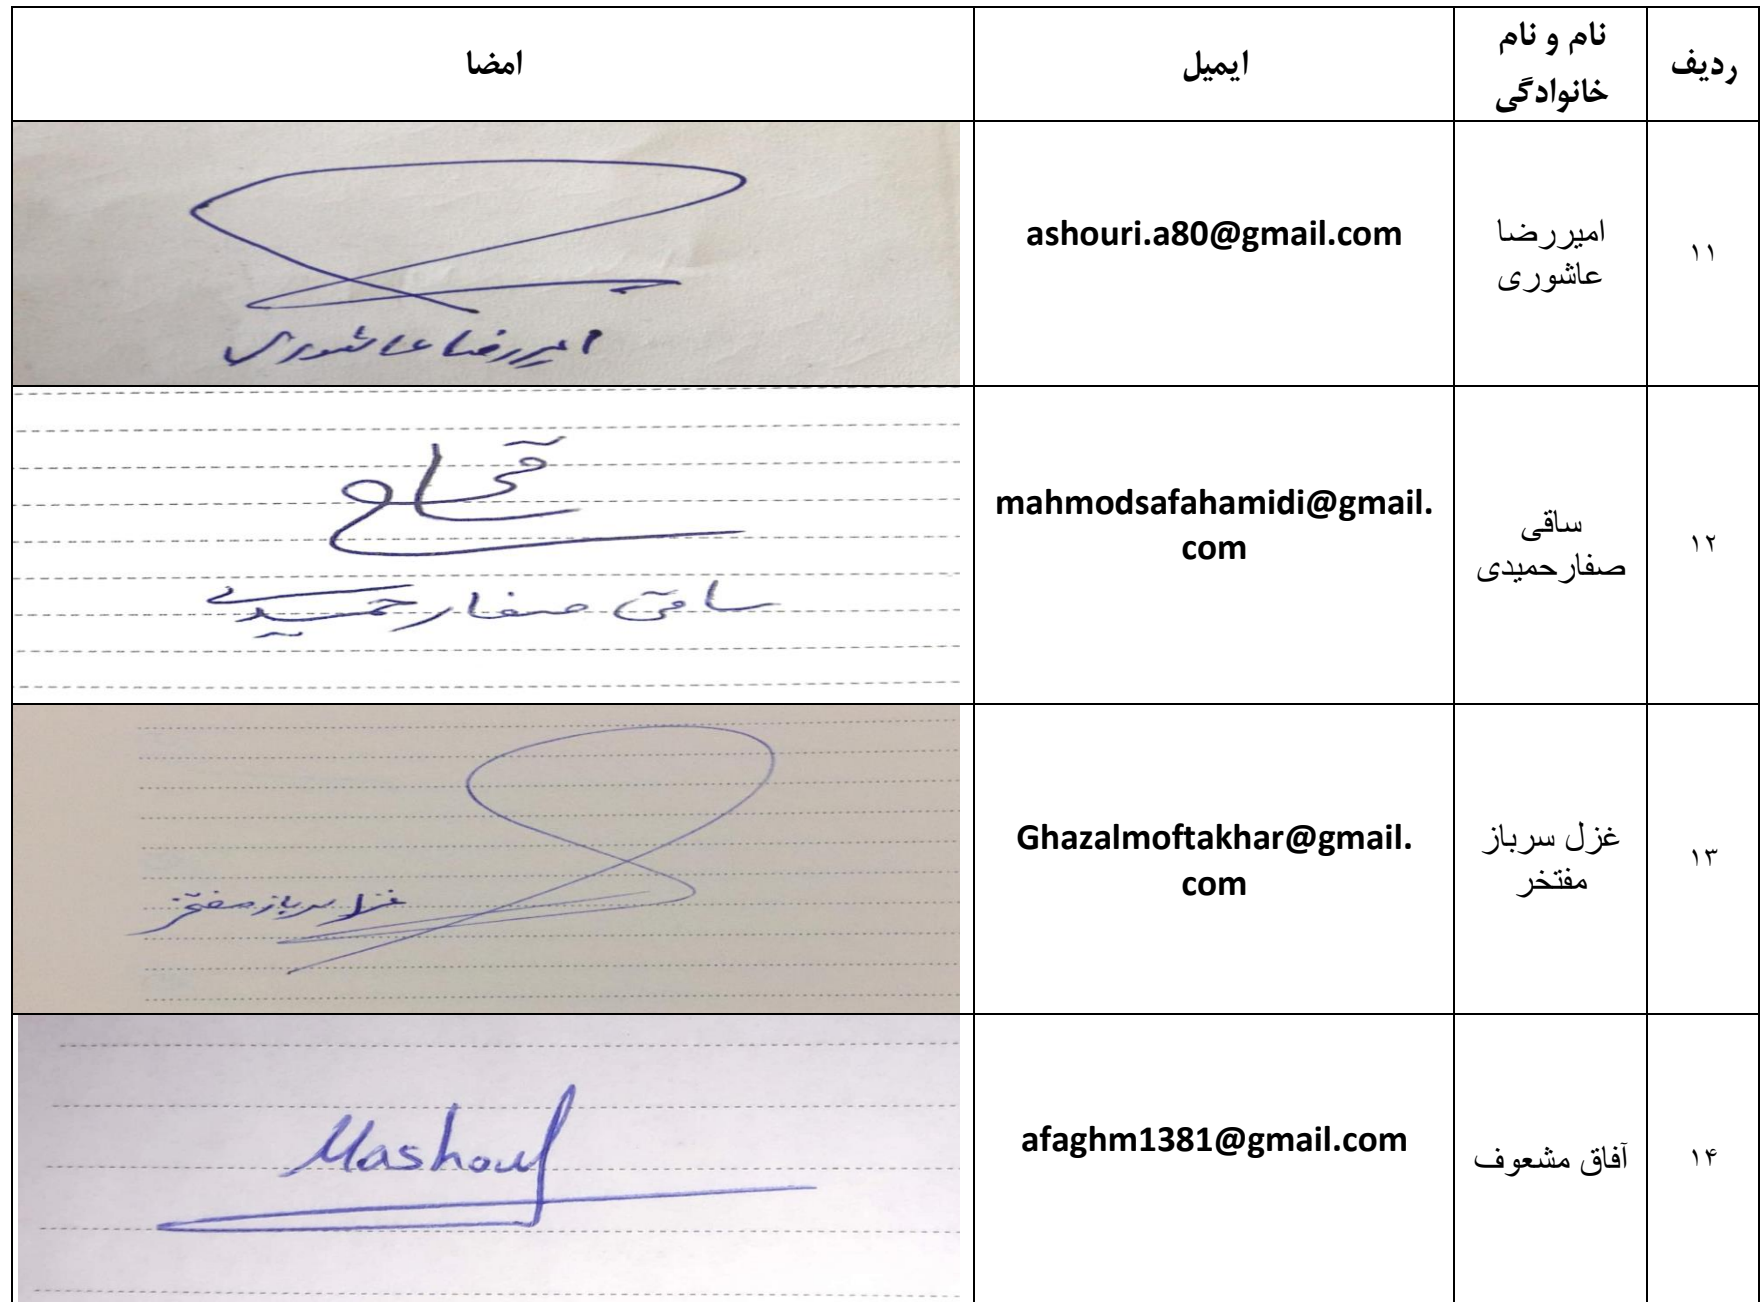 ردیف
نام و نام
خانوادگی
ایمیل
امضا
۱۱
امیررضا
عاشوری
ashouri.a80@gmail.com
امیررضا عاشوری
۱۲
ساقی
صفارحمیدی
mahmodsafahamidi@gmail.
com
ساقی صفارحمیدی
۱۳
غزل سرباز
مفتخر
Ghazalmoftakhar@gmail.
com
غزل سرباز مفتخر
۱۴
آفاق مشعوف
afaghm1381@gmail.com
Mashouf